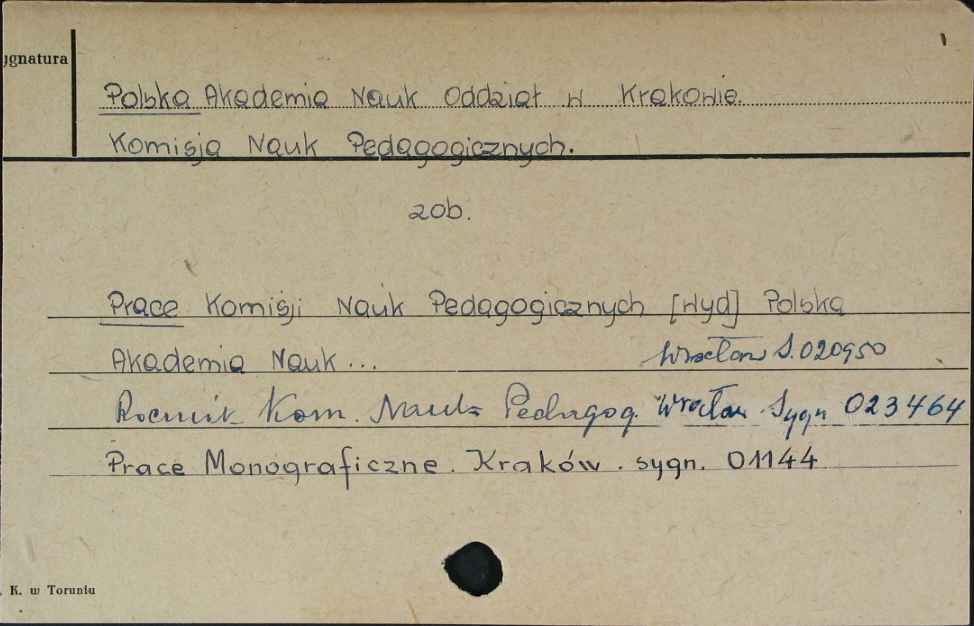 ygnatura
Polska Akademia Nauk Oddział w Krakowie.
Komisja Nauk Pedagogicznych.
zob.
Prace Komisji Nauk Pedagogicznych [Wyd] Polska
Akademia Nauk... Wrocław S. 020950
Rocznik Kom. Nauk Pedagog. Wrocław Sygn 023464
Prace Monograficzne. Kraków. sygn. 01144
. K. w Toruniu